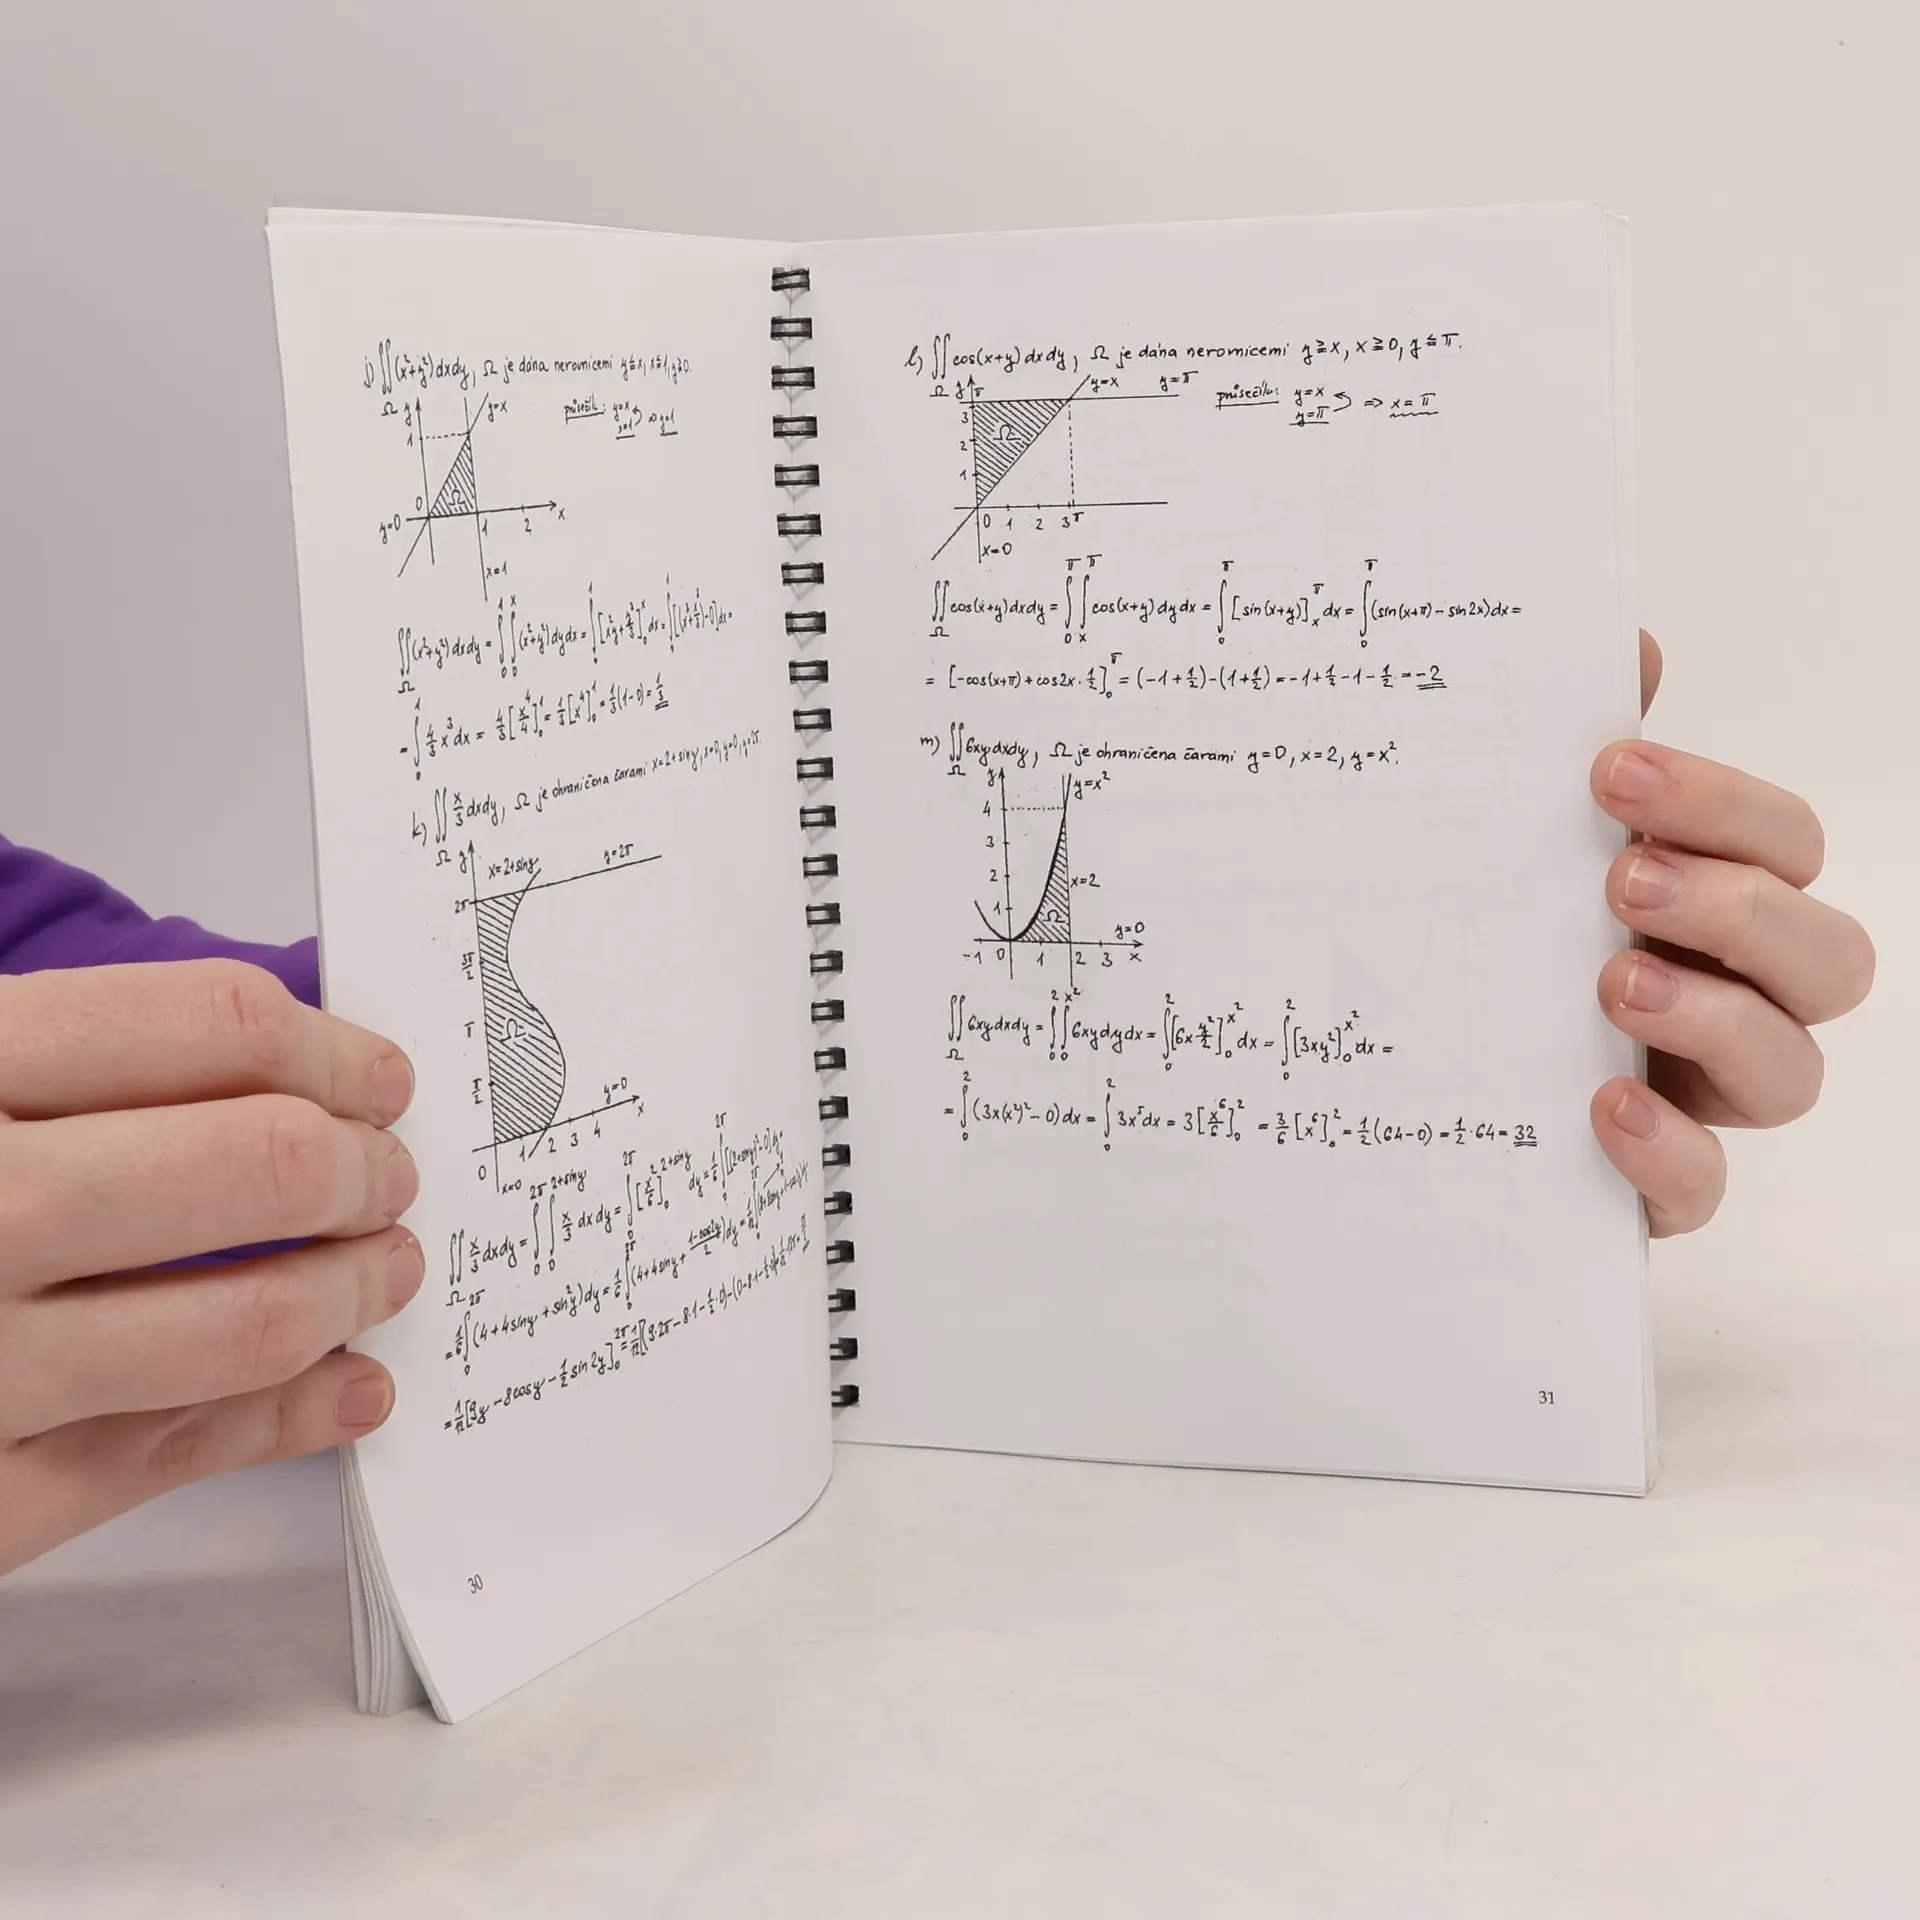 j) ∬(x²+y²) dxdy, Ω je dána nerovnicemi y≦x, x≦1, y≧0.
Ω
y
y=x
průsečík: y=x
x=1 ⇒ y=1
1
0
Ω
y=0
1 2 x
x=1
∬(x²+y²) dxdy = ∫₀¹∫₀ˣ (x²+y²) dydx = ∫₀¹ [x²y + y³/3]₀ˣ dx = ∫₀¹ [(x³ + x³/3) - 0] dx =
Ω
= ∫₀¹ 4/3 x³ dx = 4/3 [x⁴/4]₀¹ = 1/3 [x⁴]₀¹ = 1/3 (1-0) = 1/3
k) ∬ x/3 dxdy, Ω je ohraničena čarami x=2+siny, x=0, y=0, y=2π.
Ω
y
x=2+siny
y=2π
2π
3π/2
π
Ω
π/2
y=0
x
0 1 2 3 4
x=0
∬ x/3 dxdy = ∫₀^2π ∫₀^2+siny x/3 dxdy = ∫₀^2π [x²/6]₀^2+siny dy = 1/6 ∫₀^2π [(2+siny)² - 0] dy =
Ω
= 1/6 ∫₀^2π (4+4siny+sin²y) dy = 1/6 ∫₀^2π (4+4siny + (1-cos2y)/2) dy = 1/12 ∫₀^2π
= 1/12 [9y - 8cosy - 1/2 sin2y]₀^2π = 1/12 [(9·2π - 8·1 - 1/2·0) - (0 - 8·1 - 1/2·0)]
30
l) ∬ cos(x+y) dxdy, Ω je dána nerovnicemi y≧x, x≧0, y≦π.
Ω
y π
y=x
y=π
průsečík: y=x
y=π ⇒ x=π
3
Ω
2
1
0 1 2 3 π
x=0
∬ cos(x+y) dxdy = ∫₀^π ∫ₓ^π cos(x+y) dydx = ∫₀^π [sin(x+y)]ₓ^π dx = ∫₀^π (sin(x+π) - sin2x) dx =
Ω
= [-cos(x+π) + cos2x · 1/2]₀^π = (-1 + 1/2) - (1 + 1/2) = -1 + 1/2 - 1 - 1/2 = -2
m) ∬ 6xy dxdy, Ω je ohraničena čarami y=0, x=2, y=x².
Ω
y
y=x²
4
3
2
x=2
1
Ω
y=0
-1 0 1 2 3 x
∬ 6xy dxdy = ∫₀²∫₀^x² 6xy dydx = ∫₀² [6x y²/2]₀^x² dx = ∫₀² [3xy²]₀^x² dx =
Ω
= ∫₀² (3x(x²)² - 0) dx = ∫₀² 3x⁵ dx = 3 [x⁶/6]₀² = 3/6 [x⁶]₀² = 1/2 (64-0) = 1/2 · 64 = 32
31